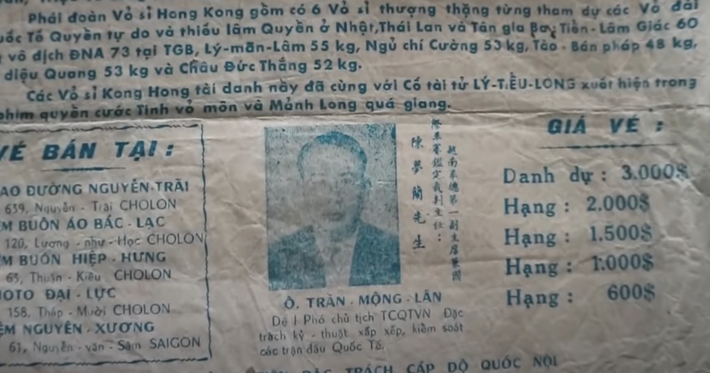 Phái đoàn Võ sĩ Hong Kong gồm có 6 Võ sĩ thượng thặng từng tham dự các Võ đài
Quốc Tế Quyền tự do và thiếu lâm Quyền ở Nhật, Thái Lan và Tân gia Ba, Tiền-Lâm Giác 60
vô địch ĐNA 73 tại TGB, Lý-mãn-Lâm 55 kg, Ngũ chí Cường 53 kg, Tào-Bán pháp 48 kg,
diệu Quang 53 kg và Châu Đức Thắng 52 kg.
Các Võ sĩ Kong Hong tài danh này đã cùng với Cố tài tử LÝ-TIỂU-LONG xuất hiện trong
phim quyền cước Tinh võ môn và Mảnh Long quá giang.
VÉ BÁN TẠI :
ĐƯỜNG NGUYỄN-TRÃI
639, Nguyễn-Trãi CHOLON
BUÔN ÁO BẮC-LẠC
120, Lương-như-Học CHOLON
BUÔN HIỆP-HƯNG
63, Thuận-Kiều CHOLON
ĐẠI-LỰC
158, Tháp-Mười CHOLON
NGUYÊN-XƯƠNG
61, Nguyễn-văn-Sâm SAIGON
越南泰德第一副主席兼國
際賽事鑑定裁判主任:
陳夢蘭先生
Ô. TRẦN-MỘNG-LÂN
Đệ I Phó chủ tịch TCQTVN Đặc
trách kỹ-thuật xấp xếp, kiểm soát
các trận đấu Quốc Tế.
GIÁ VÉ :
Danh dự : 3.000$
Hạng : 2.000$
Hạng : 1.500$
Hạng : 1.000$
Hạng : 600$
TRÁCH CẤP DO QUỐC NỘI